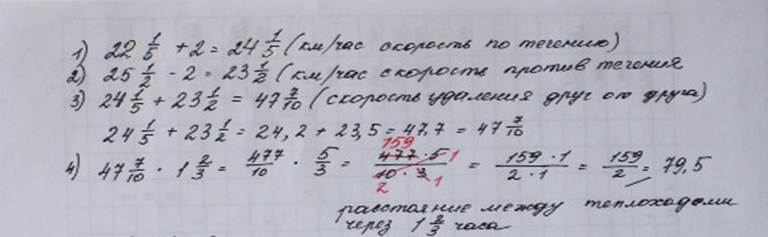 1) 22 1/5 + 2 = 24 1/5 (км/час скорость по течению)
2) 25 1/2 - 2 = 23 1/2 (км/час скорость против течения
3) 24 1/5 + 23 1/2 = 47 7/10 (скорость удаления друг от друга)
24 1/5 + 23 1/2 = 24,2 + 23,5 = 47.7 = 47 7/10
4) 47 7/10 · 1 2/3 = 477/10 · 5/3 = 159 477 · 5 1 / 10 · 3 2 1 = 159 · 1 / 2 · 1 = 159/2 = 79,5
расстояние между теплоходами
через 1 2/3 часа